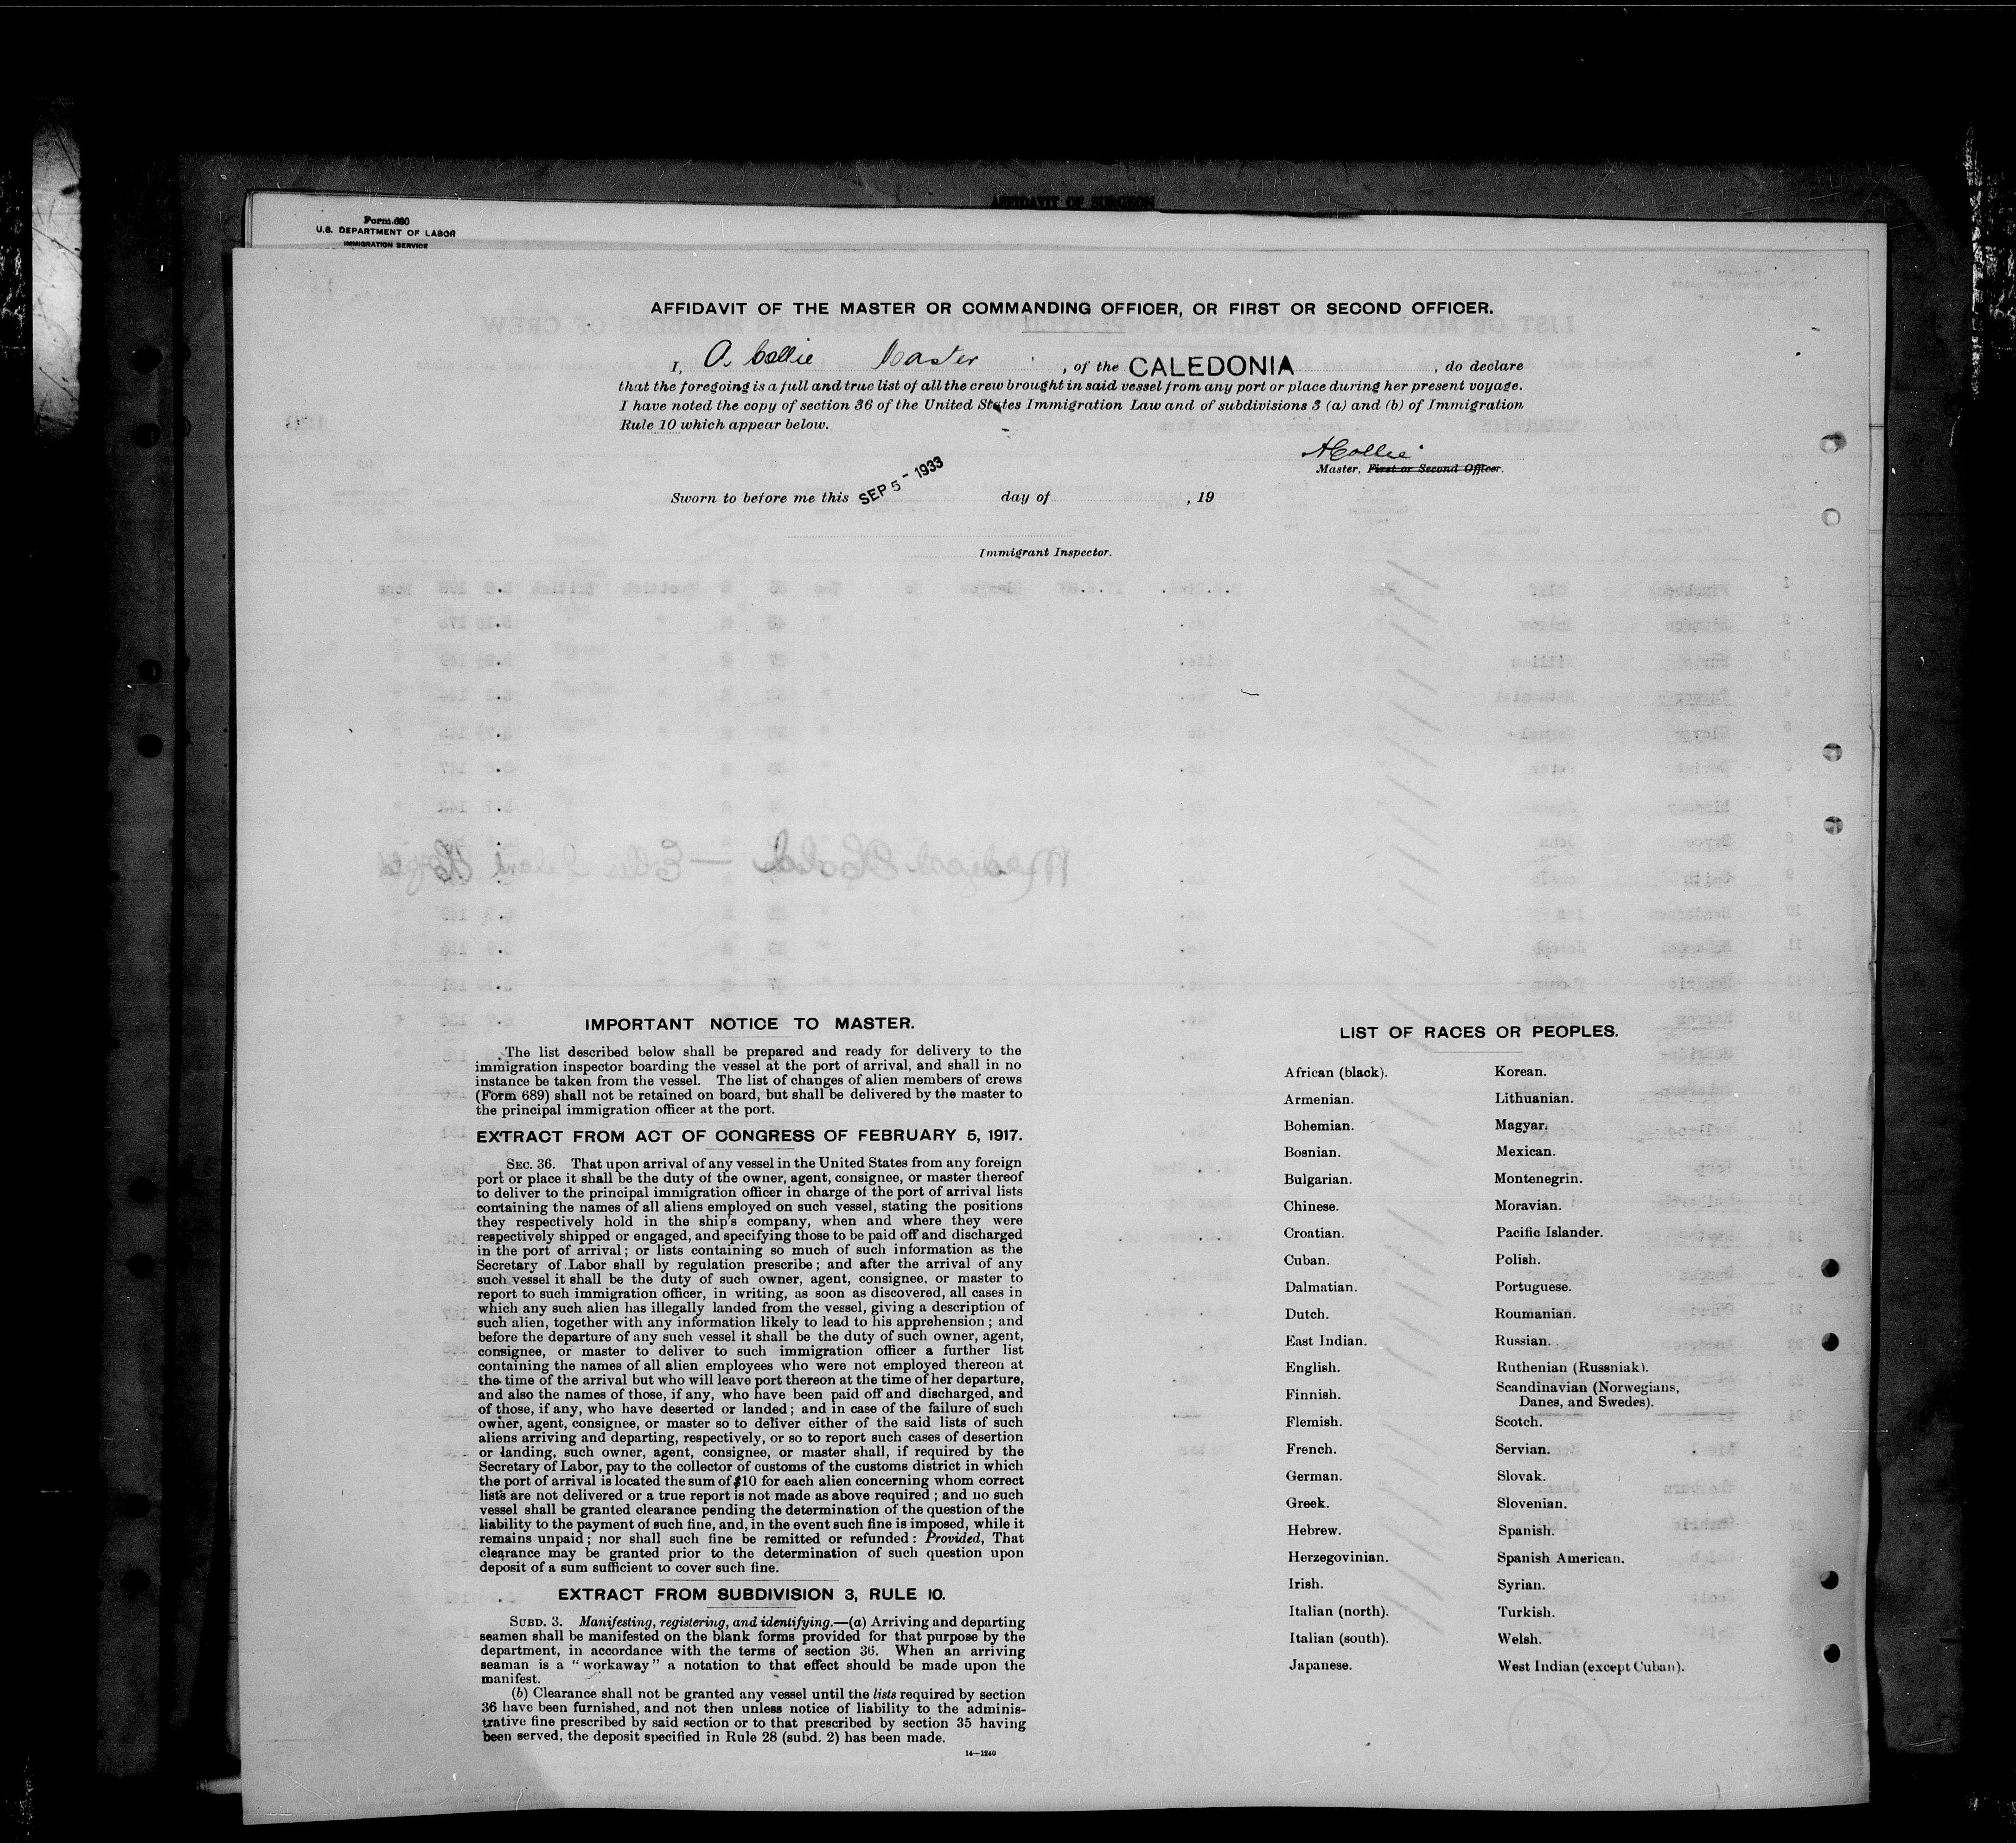 AFFIDAVIT OF SURGEON
Form 680
U.S. DEPARTMENT OF LABOR
IMMIGRATION SERVICE
AFFIDAVIT OF THE MASTER OR COMMANDING OFFICER, OR FIRST OR SECOND OFFICER.
I, A Collie Master, of the CALEDONIA, do declare
that the foregoing is a full and true list of all the crew brought in said vessel from any port or place during her present voyage.
I have noted the copy of section 36 of the United States Immigration Law and of subdivisions 3 (a) and (b) of Immigration
Rule 10 which appear below.
A Collie
Master, First or Second Officer.
Sworn to before me this SEP 5 - 1933 day of , 19
Immigrant Inspector.
IMPORTANT NOTICE TO MASTER.
The list described below shall be prepared and ready for delivery to the
immigration inspector boarding the vessel at the port of arrival, and shall in no
instance be taken from the vessel. The list of changes of alien members of crews
(Form 689) shall not be retained on board, but shall be delivered by the master to
the principal immigration officer at the port.
EXTRACT FROM ACT OF CONGRESS OF FEBRUARY 5, 1917.
SEC. 36. That upon arrival of any vessel in the United States from any foreign
port or place it shall be the duty of the owner, agent, consignee, or master thereof
to deliver to the principal immigration officer in charge of the port of arrival lists
containing the names of all aliens employed on such vessel, stating the positions
they respectively hold in the ship's company, when and where they were
respectively shipped or engaged, and specifying those to be paid off and discharged
in the port of arrival; or lists containing so much of such information as the
Secretary of Labor shall by regulation prescribe; and after the arrival of any
such vessel it shall be the duty of such owner, agent, consignee, or master to
report to such immigration officer, in writing, as soon as discovered, all cases in
which any such alien has illegally landed from the vessel, giving a description of
such alien, together with any information likely to lead to his apprehension; and
before the departure of any such vessel it shall be the duty of such owner, agent,
consignee, or master to deliver to such immigration officer a further list
containing the names of all alien employees who were not employed thereon at
the time of the arrival but who will leave port thereon at the time of her departure,
and also the names of those, if any, who have been paid off and discharged, and
of those, if any, who have deserted or landed; and in case of the failure of such
owner, agent, consignee, or master so to deliver either of the said lists of such
aliens arriving and departing, respectively, or so to report such cases of desertion
or landing, such owner, agent, consignee, or master shall, if required by the
Secretary of Labor, pay to the collector of customs of the customs district in which
the port of arrival is located the sum of $10 for each alien concerning whom correct
lists are not delivered or a true report is not made as above required; and no such
vessel shall be granted clearance pending the determination of the question of the
liability to the payment of such fine, and, in the event such fine is imposed, while it
remains unpaid; nor shall such fine be remitted or refunded: Provided, That
clearance may be granted prior to the determination of such question upon
deposit of a sum sufficient to cover such fine.
EXTRACT FROM SUBDIVISION 3, RULE 10.
SUBD. 3. Manifesting, registering, and identifying.—(a) Arriving and departing
seamen shall be manifested on the blank forms provided for that purpose by the
department, in accordance with the terms of section 36. When an arriving
seaman is a "workaway" a notation to that effect should be made upon the
manifest.
(b) Clearance shall not be granted any vessel until the lists required by section
36 have been furnished, and not then unless notice of liability to the adminis-
trative fine prescribed by said section or to that prescribed by section 35 having
been served, the deposit specified in Rule 28 (subd. 2) has been made.
14—1240
LIST OF RACES OR PEOPLES.
African (black).
Armenian.
Bohemian.
Bosnian.
Bulgarian.
Chinese.
Croatian.
Cuban.
Dalmatian.
Dutch.
East Indian.
English.
Finnish.
Flemish.
French.
German.
Greek.
Hebrew.
Herzegovinian.
Irish.
Italian (north).
Italian (south).
Japanese.
Korean.
Lithuanian.
Magyar.
Mexican.
Montenegrin.
Moravian.
Pacific Islander.
Polish.
Portuguese.
Roumanian.
Russian.
Ruthenian (Russniak).
Scandinavian (Norwegians,
Danes, and Swedes).
Scotch.
Servian.
Slovak.
Slovenian.
Spanish.
Spanish American.
Syrian.
Turkish.
Welsh.
West Indian (except Cuban).